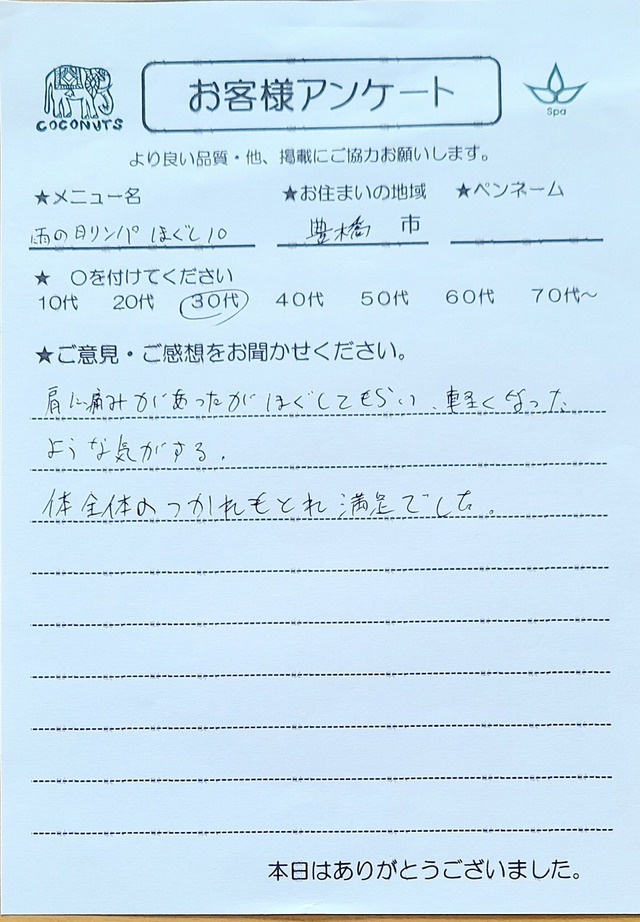 COCONUTS
お客様アンケート
Spa
より良い品質・他、掲載にご協力お願いします。
★メニュー名 ★お住まいの地域 ★ペンネーム
雨の日リンパほぐし10 豊橋 市
★ ○を付けてください
10代 20代 30代 40代 50代 60代 70代～
★ご意見・ご感想をお聞かせください。
肩に痛みがあったがほぐしてもらい、軽くなった
ような気がする。
体全体のつかれもとれ満足でした。
本日はありがとうございました。